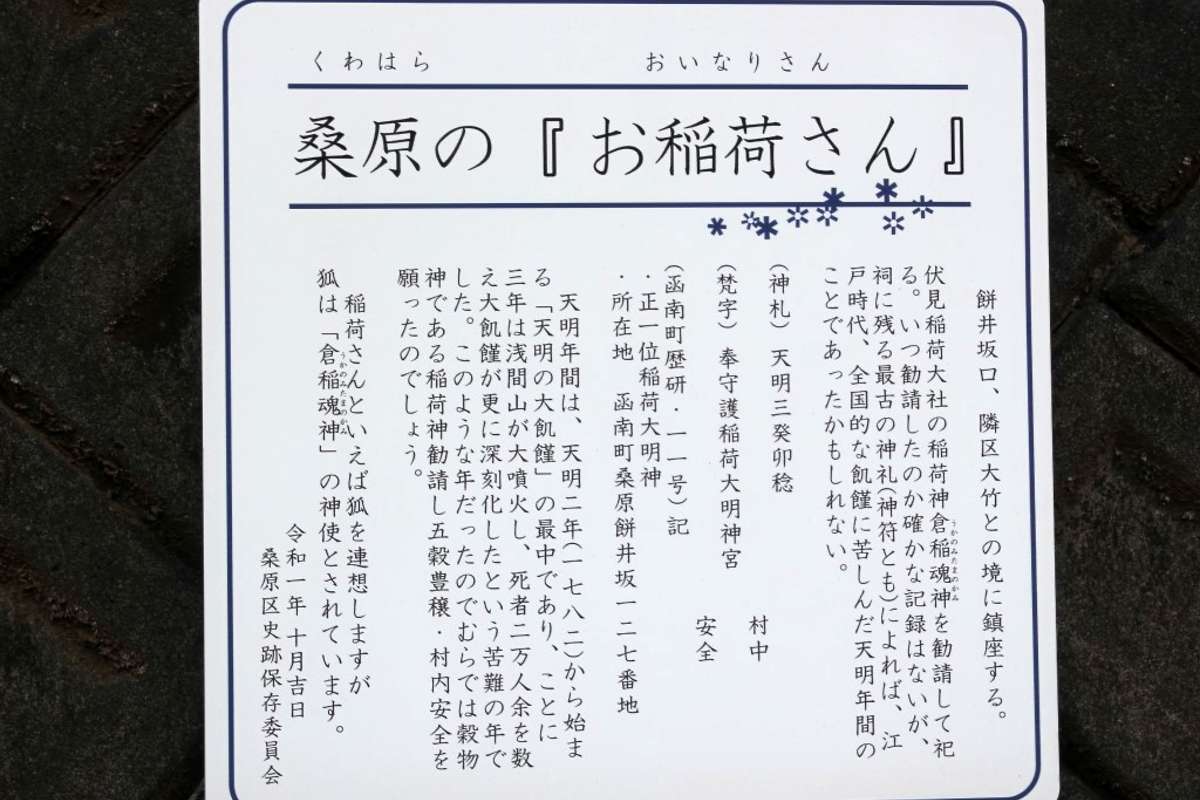 くわはら　おいなりさん
桑原の『お稲荷さん』
餅井坂口、隣区大竹との境に鎮座する。
伏見稲荷大社の稲荷神倉稲魂神を勧請して祀
うかのみたまのかみ
る。いつ勧請したのか確かな記録はないが、
祠に残る最古の神礼(神符とも)によれば、江
戸時代、全国的な飢饉に苦しんだ天明年間の
ことであったかもしれない。
(神札)天明三癸卯稔　村中
(梵字)奉守護稲荷大明神宮　安全
(函南町歴研・一一号)記
・正一位稲荷大明神
・所在地　函南町桑原餅井坂一二七番地
天明年間は、天明二年(一七八二)から始ま
る「天明の大飢饉」の最中であり、ことに
三年は浅間山が大噴火し、死者二万人余を数
え大飢饉が更に深刻化したという苦難の年で
した。このような年だったのでむらでは穀物
神である稲荷神勧請し五穀豊穣・村内安全を
願ったのでしょう。
稲荷さんといえば狐を連想しますが
狐は「倉稲魂神」の神使とされています。
うかのみたまのかみ
令和一年　十月吉日
桑原区史跡保存委員会